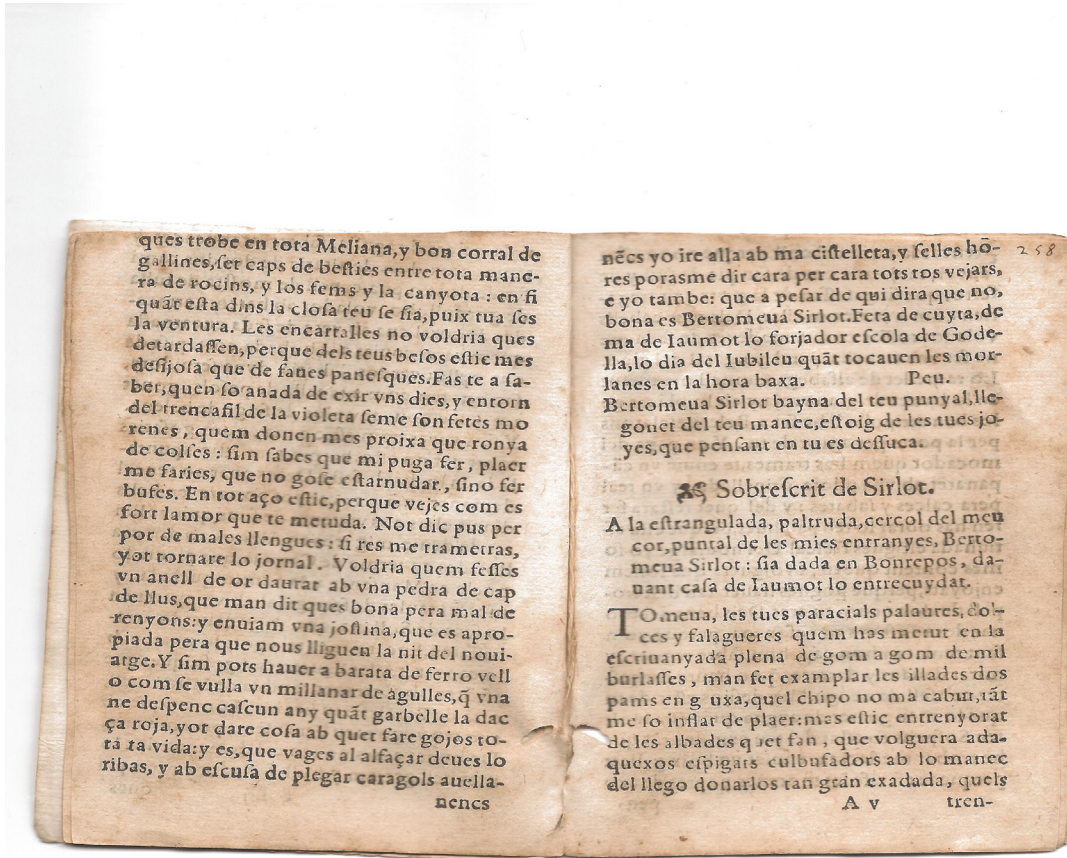 ques trobe en tota Meliana,y bon corral de
gallines,ſet caps de beſties entre tota mane-
ra de rocins, y los fems y la canyota : en fi
quãt eſta dins la cloſa teu ſe ſia,puix tua ſes
la ventura. Les encartalles no voldria ques
detardaſſen,perque dels teus beſos eſtic mes
deſijoſa que de faues paneſques.Fas te a ſa-
ber,quen ſo anada de exir vns dies,y entorn
del trencafil de la violeta ſeme ſon fetes mo
renes , quem donen mes proixa que ronya
de colſes : ſim ſabes que mi puga fer, plaer
me faries, que no goſe eſtarnudar , ſino fer
bufes. En tot aço eſtic,perque vejes com es
fort lamor que te metuda. Not dic pus per
por de males llengues : ſi res me trametras,
yot tornare lo jornal . Voldria quem feſſes
vn anell de or daurat ab vna pedra de cap
de llus,que man dit ques bona pera mal de
renyons:y enuiam vna joſtina,que es apro-
piada pera que nous lliguen la nit del noui-
atge.Y ſim pots hauer a barata de ferro vell
o com ſe vulla vn millanar de agulles,q̃ vna
ne deſpenc caſcun any quãt garbelle la dac
ça roja,yot dare coſa ab quet fare gojos to-
ta ta vida:y es,que vages al alfaçar deues lo
ribas, y ab eſcuſa de plegar caragols auella-
nencs
nẽcs yo ire alla ab ma ciſtelleta,y ſelles hõ-
res porasme dir cara per cara tots tos vejars,
e yo tambe: que a peſar de qui dira que no,
bona es Bertomeua Sirlot.Feta de cuyta,de
ma de Iaumot lo forjador eſcola de Gode-
lla,lo dia del Iubileu quãt tocauen les mor-
lanes en la hora baxa. Peu.
Bertomeua Sirlot bayna del teu punyal,lle-
gonet del teu manec,eſtoig de les tues jo-
yes,que penſant en tu es deſſuca.
Sobreſcrit de Sirlot.
A la eſtrangulada, paltruda,cercol del meu
cor,puntal de les mies entranyes, Berto-
meua Sirlot : ſia dada en Bonrepos, da-
uant caſa de Iaumot lo entrecuydat.
TOmeua, les tues paracials palautes, dol-
ces y falagueres quem has metut en la
eſcriuanyada plena de gom a gom de mil
burlaſſes , man fet examplar les illades dos
pams en g uxa,quel chipo no ma cabut,tãt
me ſo inflat de plaer:mes eſtic entrenyorat
de les albades q uet fan , que volguera ada-
quexos eſpigats culbufadors ab lo manec
del llego donarlos tan gran exadada, quels
A v tren-
258